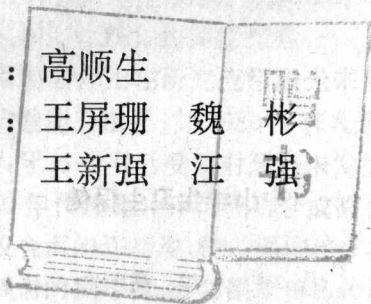 ：高顺生
：王屏珊 魏 彬
王新强 汪 强